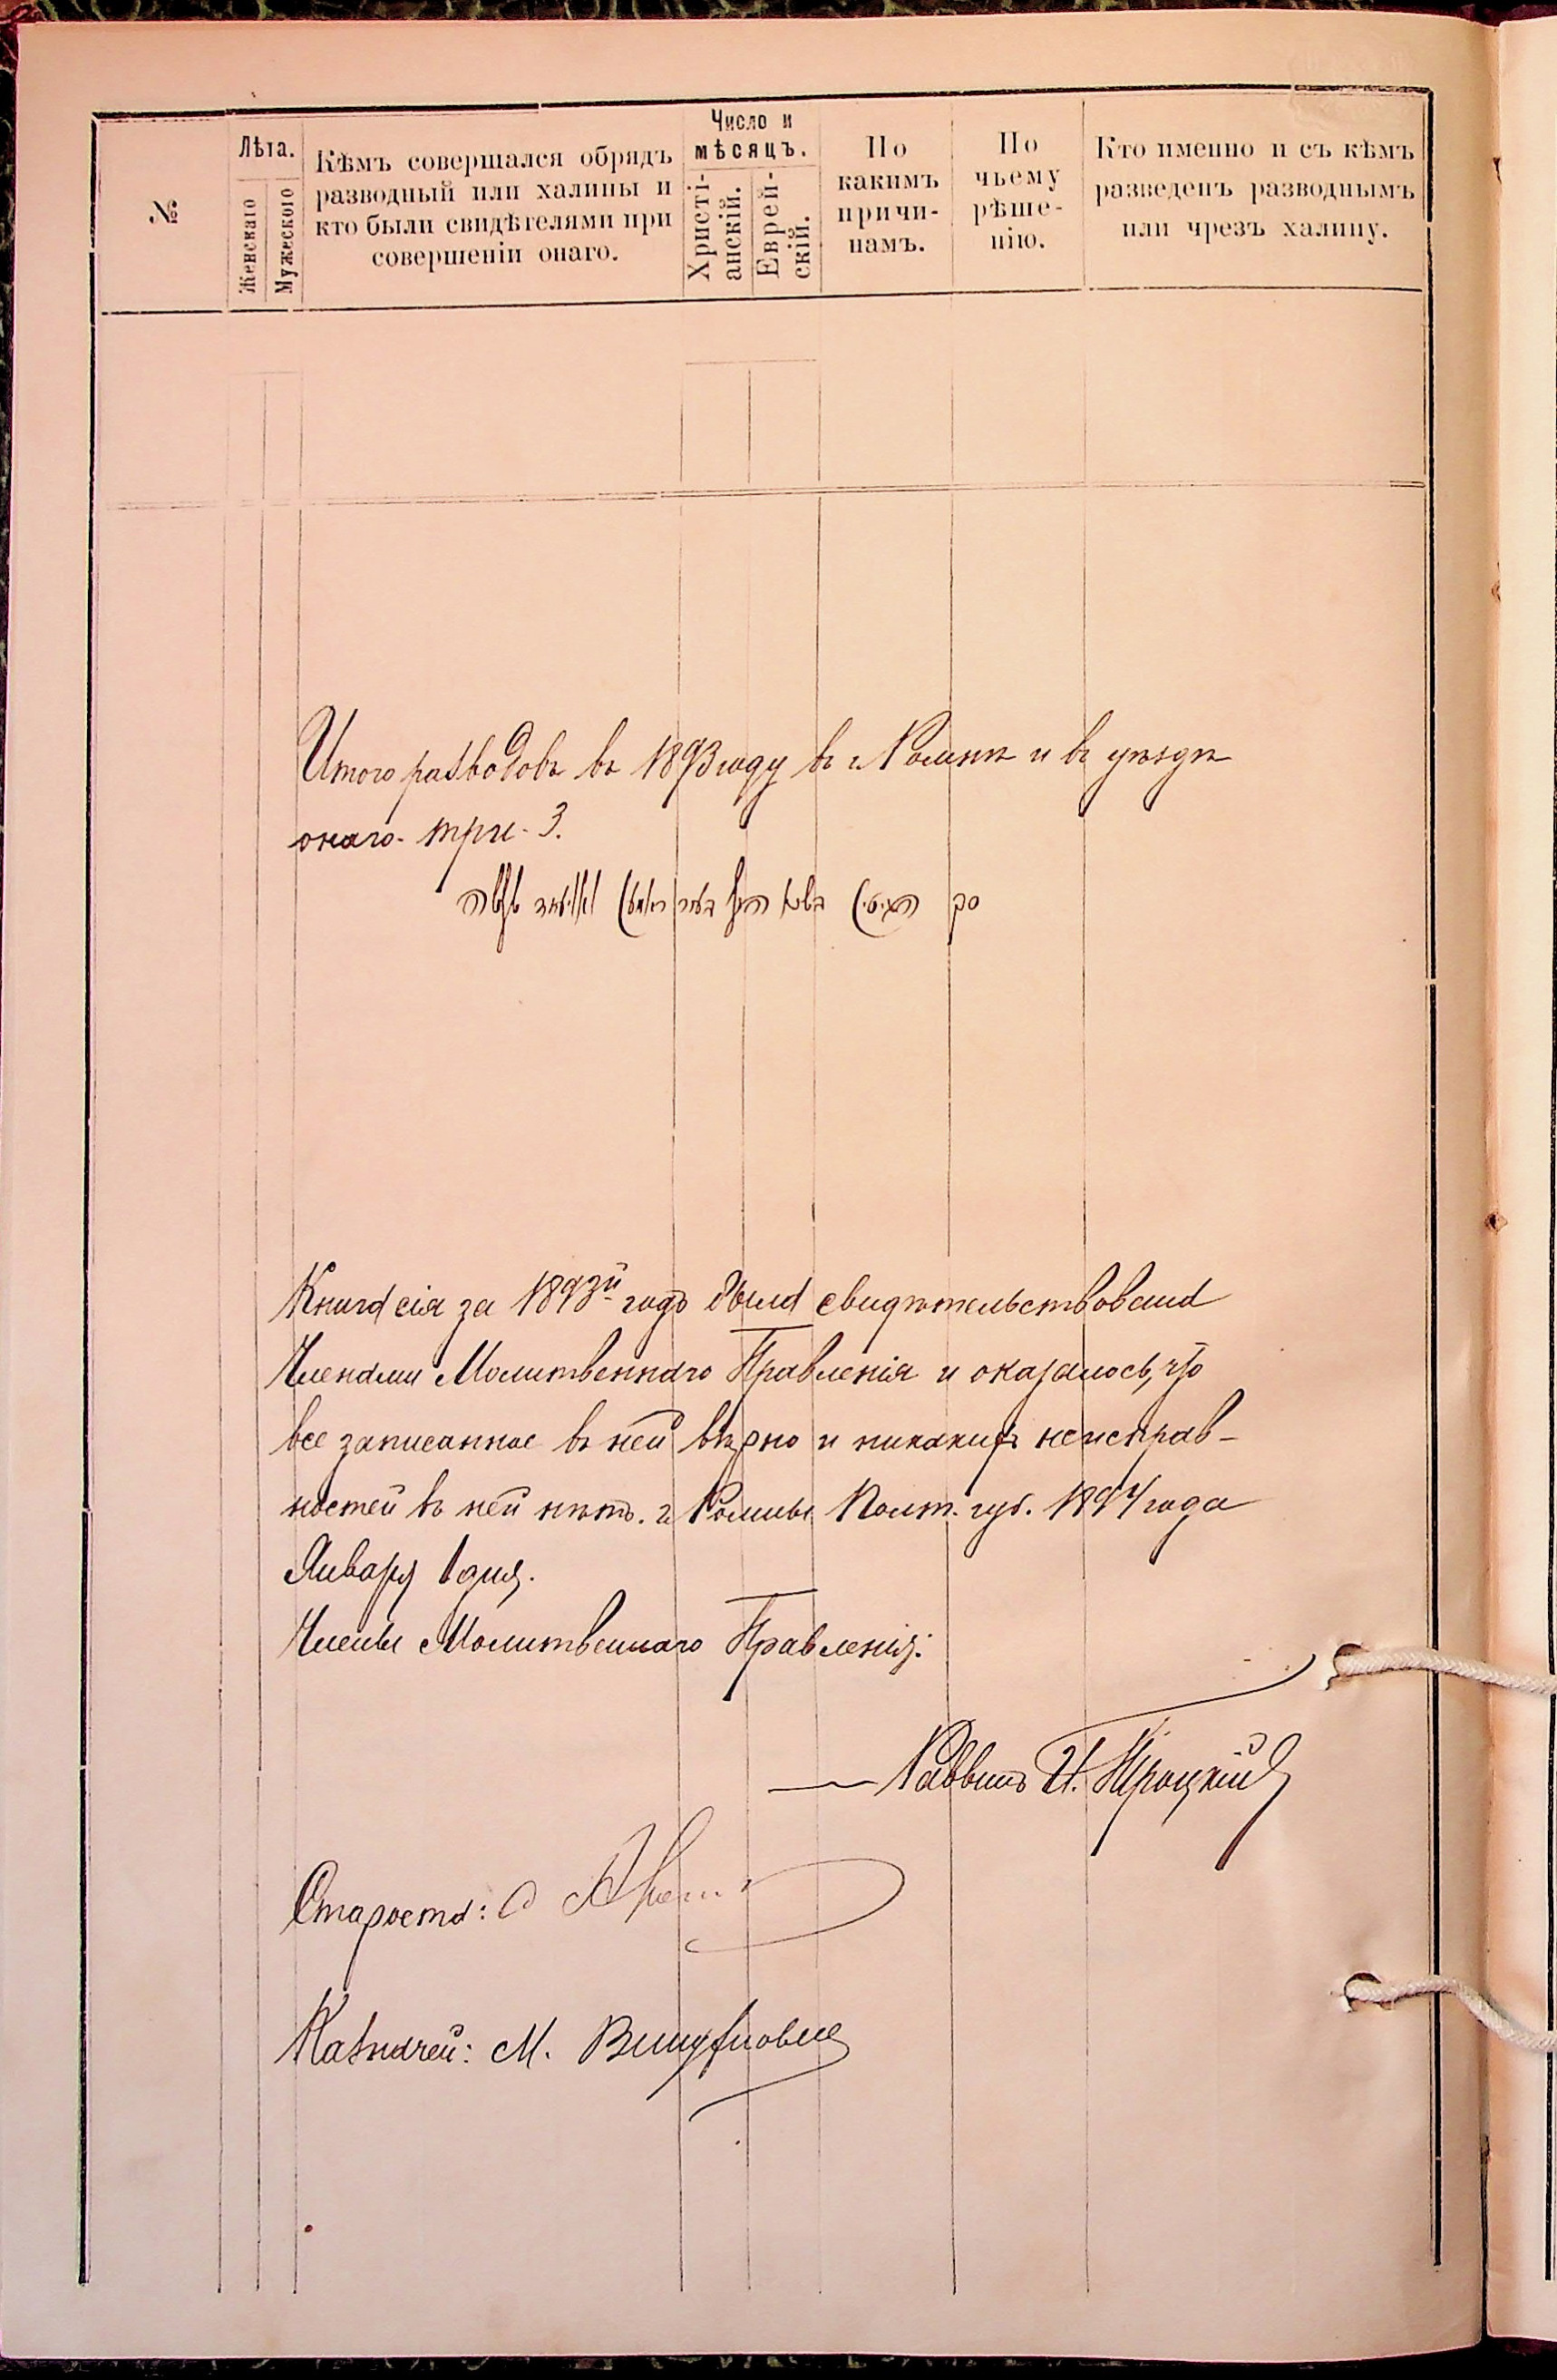 №
Лѣта.
Женскаго
Мужескаго
Кѣмъ совершался обрядъ
разводный или халицы и
кто были свидѣтелями при
совершеніи онаго.
Число и
мѣсяцъ.
Христі-
анскій.
Еврей-
скій.
По
какимъ
причи-
намъ.
По
чьему
рѣше-
нію.
Кто именно и съ кѣмъ
разведенъ разводнымъ
или чрезъ халицу.
Итого разводовъ въ 1893 году въ г. Ромнѣ и въ уѣздѣ
онаго - три - 3.
Книга сія за 1893й годъ была свидѣтельствована
Членами Молитвеннаго Правленія и оказалось, что
все записанное въ ней вѣрно и никакихъ неисправ-
ностей въ ней нѣтъ. г. Ромны Полт. губ. 1894 года
Января 1 дня.
Члены Молитвеннаго Правленія:
Раввинъ И. Троцкій
Староста:
Казначей: М.